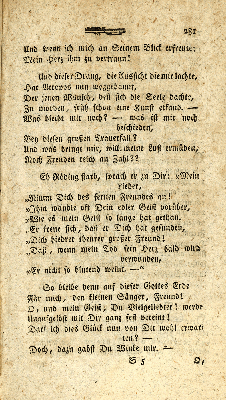 281
Und wenn ich mich an Seinem Blick erfreute:
Mein Herz ihm zu vertraun!
Und dieser Drang, die Aussicht die mir lachte,
Hat
Der jenen Wunsch, deß sich die Seele dachte,
In mordet, früh schon eine Kunst erfand. —
Was bleibt mir noch? — was ist mir noch
beschieden,
Bey diesen großen Trauerfall?
Und was bringt mir, will meine Lust ermüden,
Noch Freuden reich an Zahl??
Eh starb, sprach er zu Dir: „Mein
lieder,
„Nimm Dich des fernen Freundes an!
„Ihm wandte oft Dein edler Geist
„Wie es mein Geist so lange hat gethan.
„Er irrte sich, daß er Dich hat gefunden,
„Dich biedrer theurer großer Freund!
„Daß, wenn mein Tod sein Herz bald wird
verwunden,
„Er nicht so blutend weint. —“
So bleibe denn auf dieser Gottes Erde
Für auch, den kleinen Sänger, Freund!
O, und mein Geist, Du Vielgeliebter! werde
Unauflöst mit Dir ganz fest vereint!
Darf ich dies Glück nun von Dir wohl erwar-
ten? —
Doch, dazu gabst Du Winke mir. —
S 5
O,